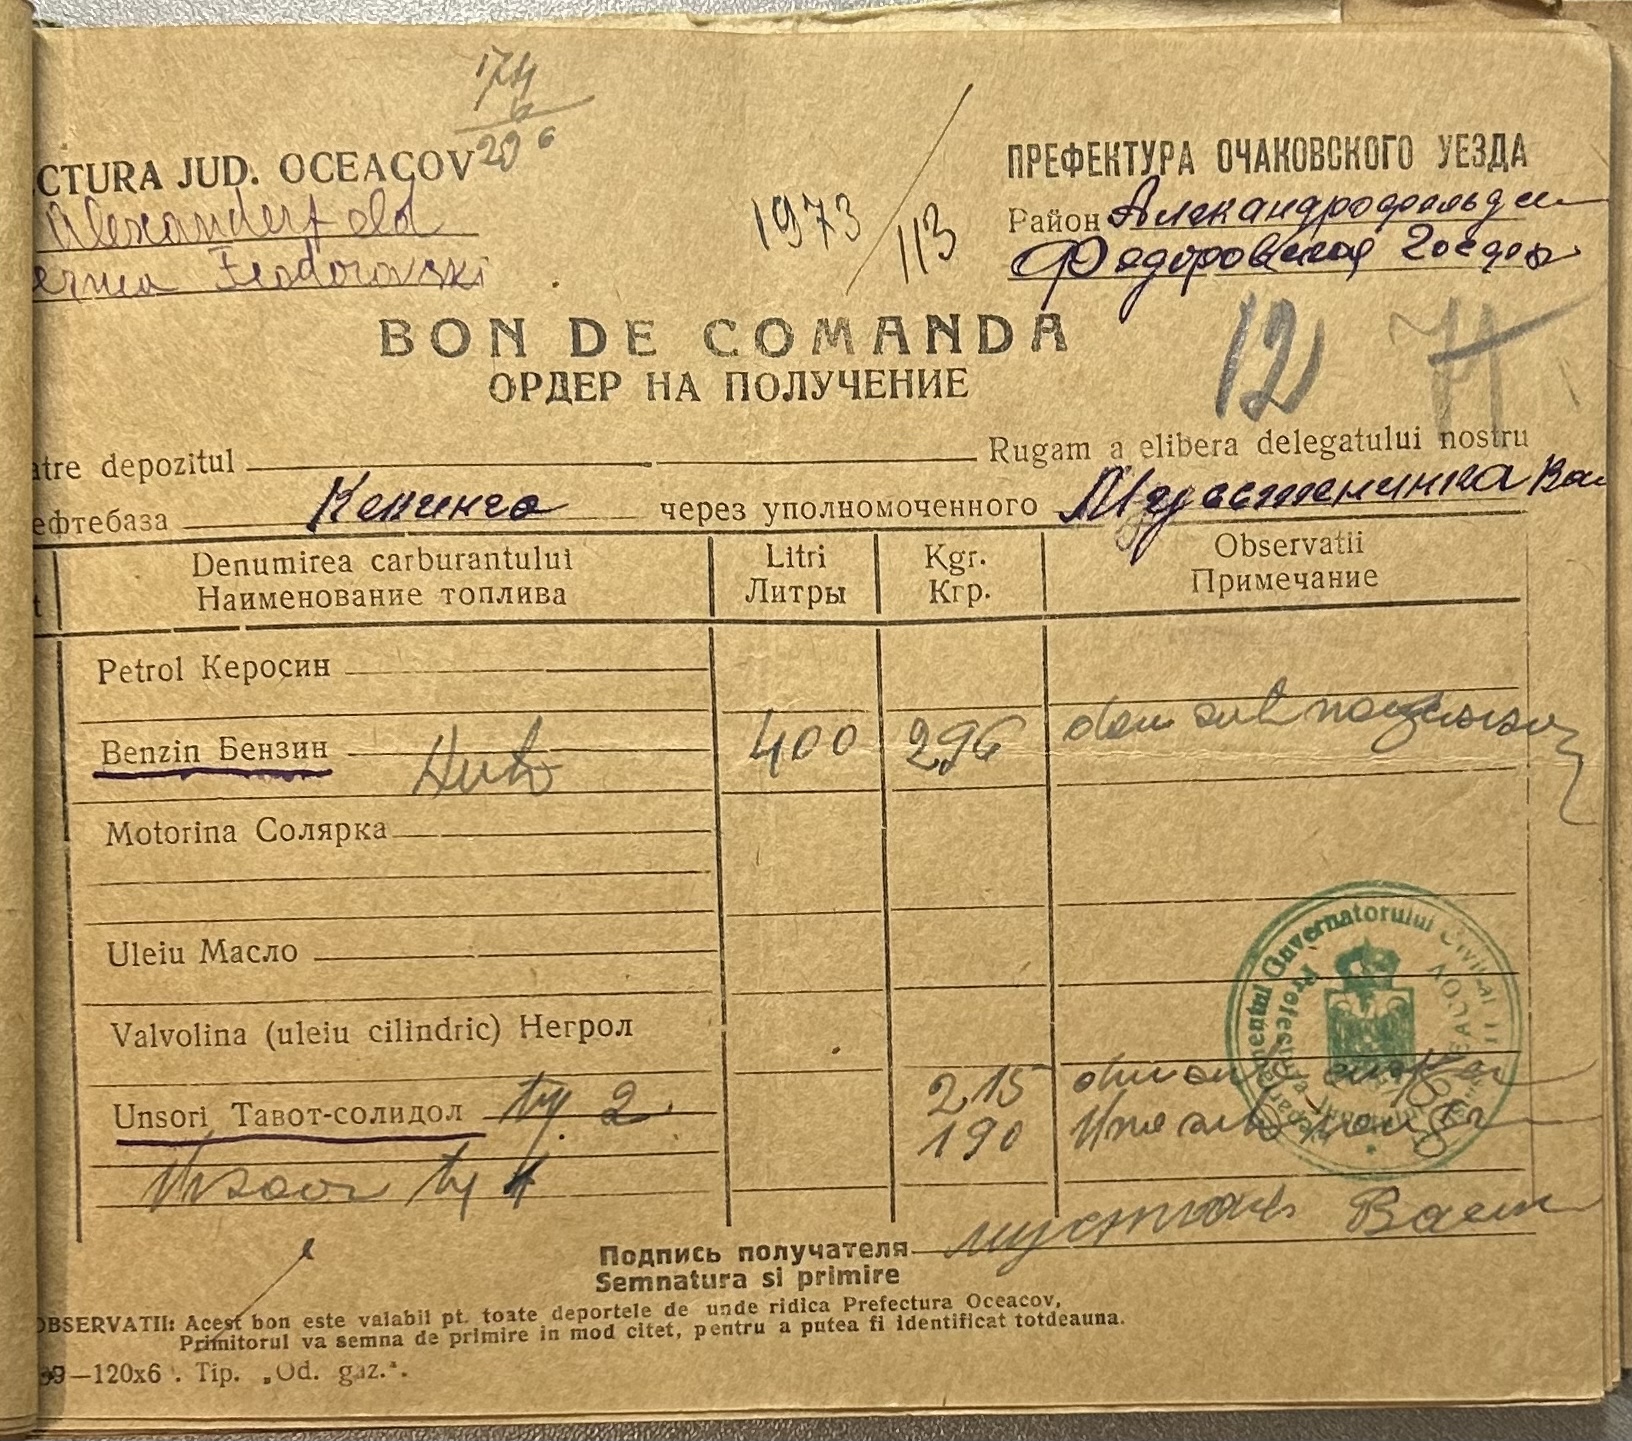 174
6
29 6
CTURA JUD. OCEACOV
Alexanderfeld
erma Feodorovski
1973/113
ПРЕФЕКТУРА ОЧАКОВСКОГО УЕЗДА
Район
Федоровская
BON DE COMANDA
ОРДЕР НА ПОЛУЧЕНИЕ
12
atre depozitul Rugam a elibera delegatului nostru
ефтебаза через уполномоченного
Denumirea carburantului Litri Kgr. Observatii
Наименование топлива Литры Кгр. Примечание
Petrol Керосин
Benzin Бензин Auto 400 296
Motorina Солярка
Uleiu Масло
Valvolina (uleiu cilindric) Негрол
Unsori Тавот-солидол ty. 2. 215
190
ty 4
Guvernatorului Civil al
Prefectura
Подпись получателя
Semnatura si primire
OBSERVATII: Acest bon este valabil pt. toate deportele de unde ridica Prefectura Oceacov,
Primitorul va semna de primire in mod citet, pentru a putea fi identificat totdeauna.
—120x6 . Tip. „Od. gaz.".